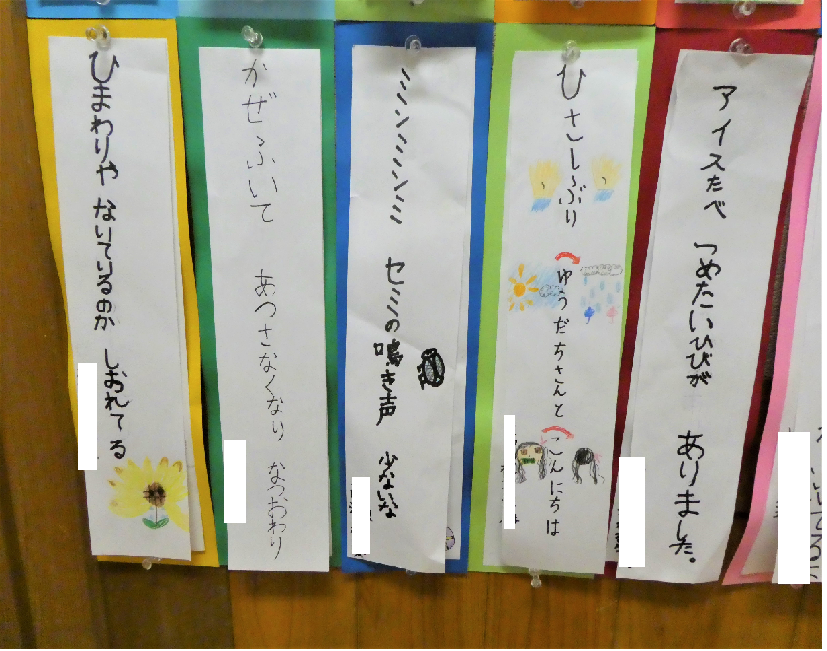 アイスたべ つめたいひびが ありました。
ひさしぶり ゆうだちさんと こんにちは
ミンミンミ セミの鳴き声 少ないな
かぜふいて あつさなくなり なつおわり
ひまわりや ないているのか しおれてる